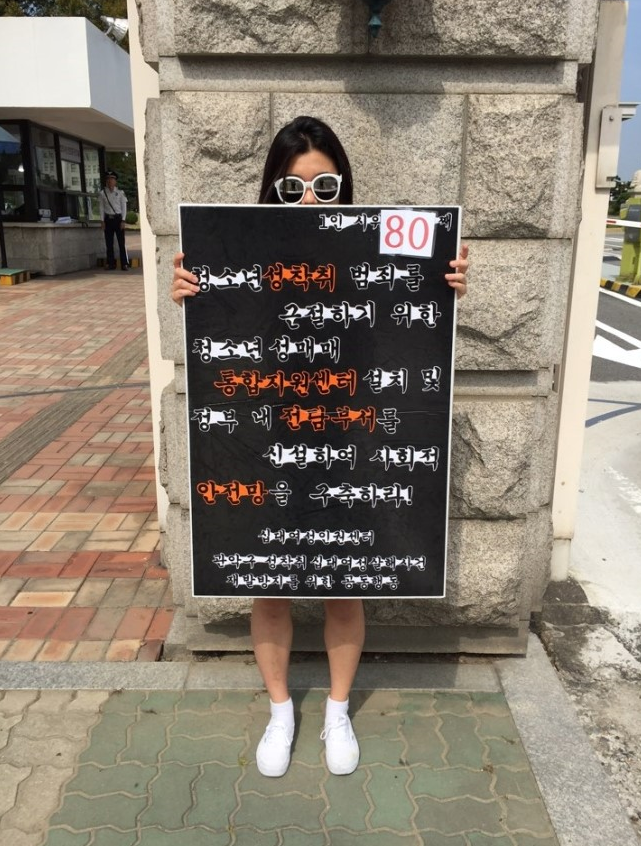 1인 시위 80
청소년성착취 범죄를
근절하기 위한
청소년 성매매
통합지원센터 설치 및
정부 내 전담부서를
신설하여 사회적
안전망을 구축하라!
십대여성인권센터
관악구 성착취 십대여성살해사건
재발방지를 위한 공동행동